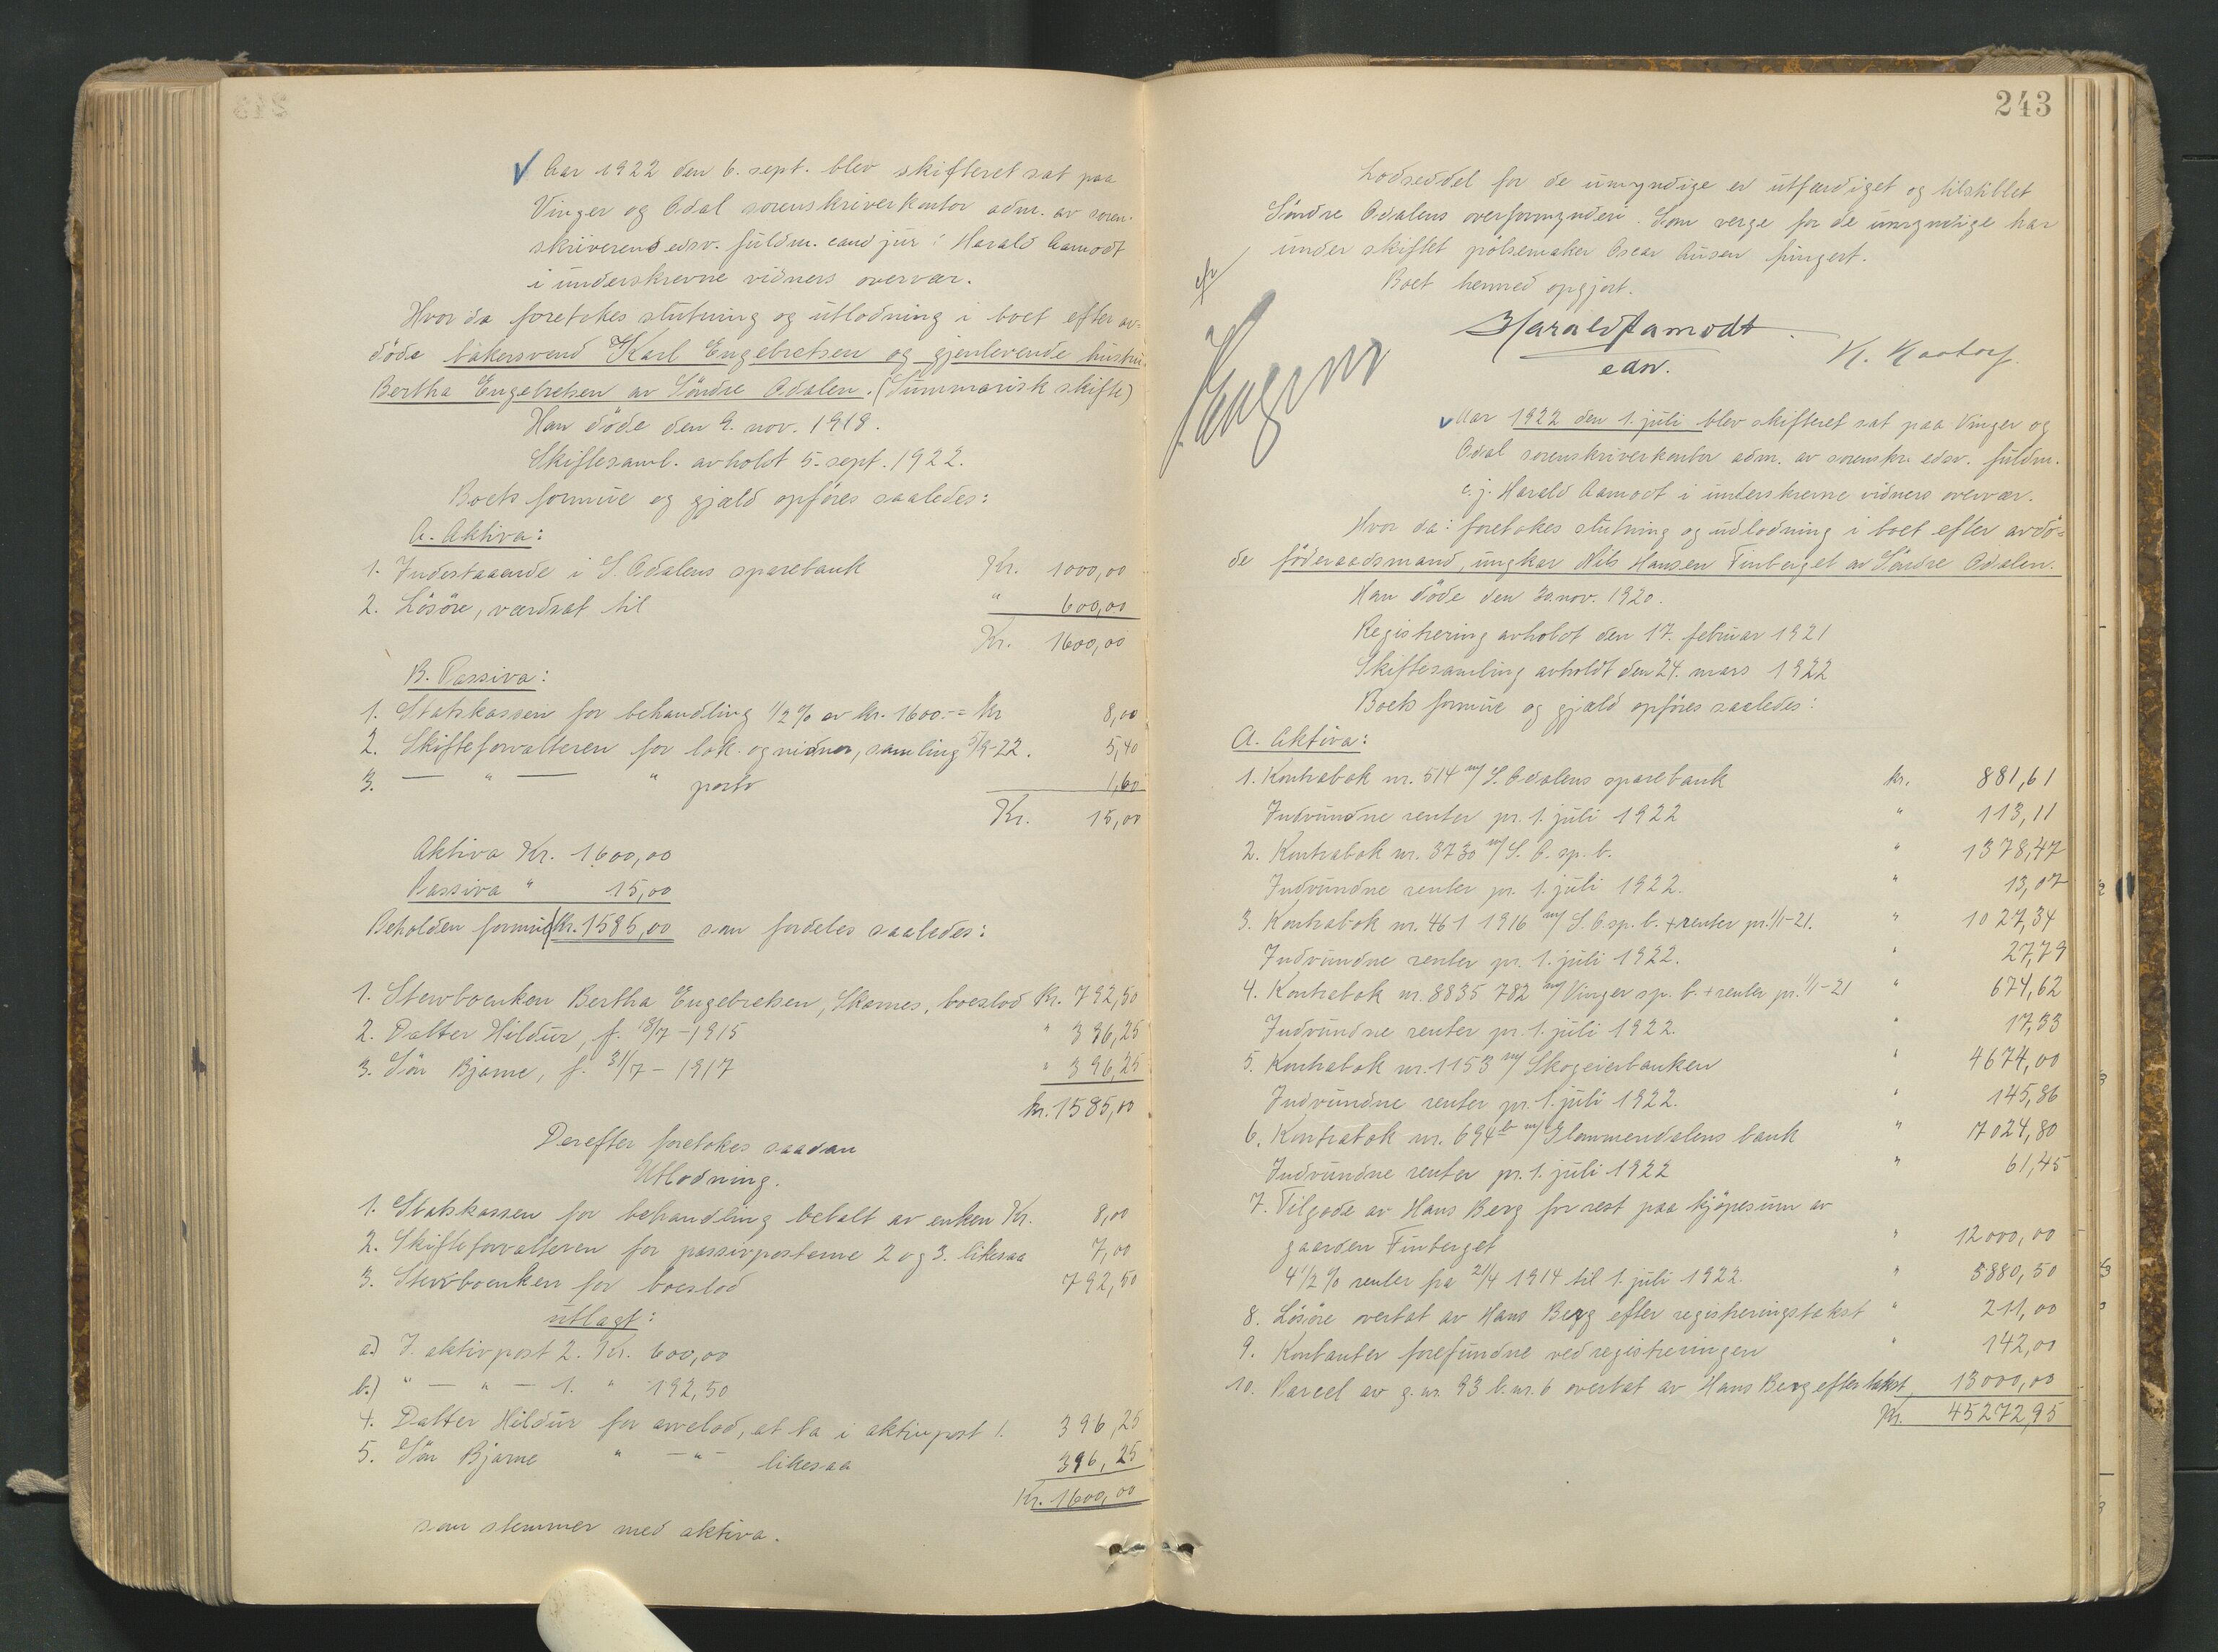 Aar 1922 den 6. sept. blev skifteret sat paa
Vinger og Odal sorenskriverkontor adm. av soren-
skriverens edsv. fuldm. cand jur: Harald Aamodt
i underskrevne vidners overvær.
Hvor da foretokes slutning og utlodning i boet efter av-
døde bakersvend Karl Engebretsen og gjenlevende hustru
Bertha Engebretsen av Søndre Odalen. (Summarisk skifte)
Han døde den 9. nov. 1918.
Skiftesaml. avholdt 5. sept. 1922.
Boets formue og gjæld opføres saaledes:
A. Aktiva:
1. Indestaaende i S. Odalens sparebank Kr. 1000,00
2. Løsøre, værdsat til " 600,00
Kr. 1600,00
B. Passiva:
1. Statskassen for behandling 1/2 % av kr. 1600.- = Kr 8,00
2. Skifteforvalteren for lok. og vidner, samling 5/9-22. 5,40
3. — " — " porto 1,60
Kr. 15,00
Aktiva Kr. 1600,00
Passiva " 15,00
Beholden formue kr. 1585,00 som fordeles saaledes:
1. Stervboenken Bertha Engebretsen, Skarnes, boeslod Kr. 792,50
2. Datter Hildur, f. 18/7 - 1915 " 396,25
3. Søn Bjarne, f. 31/7 - 1917 " 396,25
kr. 1585,00
Derefter foretokes saadan
Utlodning.
1. Statskassen for behandling betalt av enken Kr. 8,00
2. Skifteforvalteren for passivposterne 2 og 3. likesaa 7,00
3. Stervboenken for boeslod 792,50
utlagt:
a.) I. aktivpost 2. Kr. 600,00
b.) " — " — 1. " 192,50
4. Datter Hildur for arvelod, at ta i aktivpost 1. 396,25
5. Søn Bjarne " — " — likesaa 396,25
Kr. 1600,00
som stemmer med aktiva.
243
Lodseddel for de umyndige er utfærdiget og tilstillet
Søndre Odalens overformynderi. Som verge for de umyndige har
under skiftet pølsemaker Oscar Ausen fungert.
Boet hermed opgjort.
Harald Aamodt
edsv.
Aar 1922 den 1. juli blev skifteret sat paa Vinger og
Odal sorenskriverkontor adm. av sorenskr. edsv. fuldm.
c. j. Harald Aamodt i underskrevne vidners overvær.
Hvor da: foretokes slutning og udlodning i boet efter avdø-
de føderaadsmand, ungkar Nils Hansen Finberget av Søndre Odalen.
Han døde den 30. nov. 1920.
Registrering avholdt den 17. februar 1921
Skiftesamling avholdt den 24. mars 1922
Boets formue og gjæld opføres saaledes:
A. Aktiva:
1. Kontrabok nr. 514 m/ S. Odalens sparebank kr. 881,61
Indvundne renter pr. 1. juli 1922 " 113,11
2. Kontrabok nr. 3730 m/ S. O. sp. b. " 1378,47
Indvundne renter pr. 1. juli 1922. " 13,07
3. Kontrabok nr. 461 1916 m/ S. O sp. b. + renter pr. 1/1-21. " 1027,34
Indvundne renter pr. 1. juli 1922. " 27,79
4. Kontrabok nr. 8835 782 m/ Vinger sp. b. + renter pr. 1/1-21 " 674,62
Indvundne renter pr. 1. juli 1922. " 17,33
5. Kontrabok nr. 1153 m/ Skogeierbanken " 4674,00
Indvundne renter pr. 1. juli 1922. " 145,86
6. Kontrabok nr. 694 b m/ Glommendalens bank " 7024,80
Indvundne renter pr. 1. juli 1922 " 61,45
7. Tilgode av Hans Berg for rest paa kjøpesum av
gaarden Finberget " 12000,00
4 1/2 % renter fra 21/4 1914 til 1. juli 1922. " 3880,50
8. Løsøre overtat av Hans Berg efter registreringstakst " 211,00
9. Kontanter forefundne ved registreringen " 142,00
10. Parcel av g. nr. 93 b. nr. 6 overtat av Hans Berg efter takst 13000,00
Kr. 45272,95